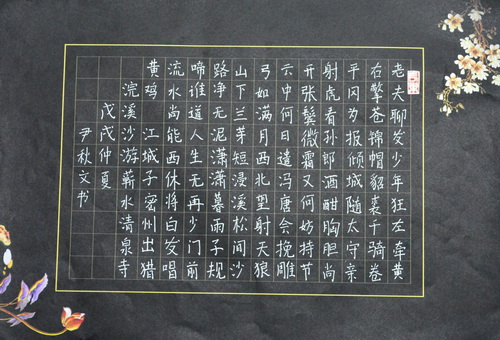 老夫聊发少年狂左牵黄
右擎苍锦帽貂裘千骑卷
平冈为报倾城随太守亲
射虎看孙郎酒酣胸胆尚
开张鬓微霜又何妨持节
云中何日遣冯唐会挽雕
弓如满月西北望射天狼
山下兰芽短漫溪松间沙
路净无泥潇潇暮雨子规
啼谁道人生无再少门前
流水尚能西休将白发唱
黄鸡 江城子密州出猎
浣溪沙游蕲水清泉寺
戊戌仲夏
尹秋文书